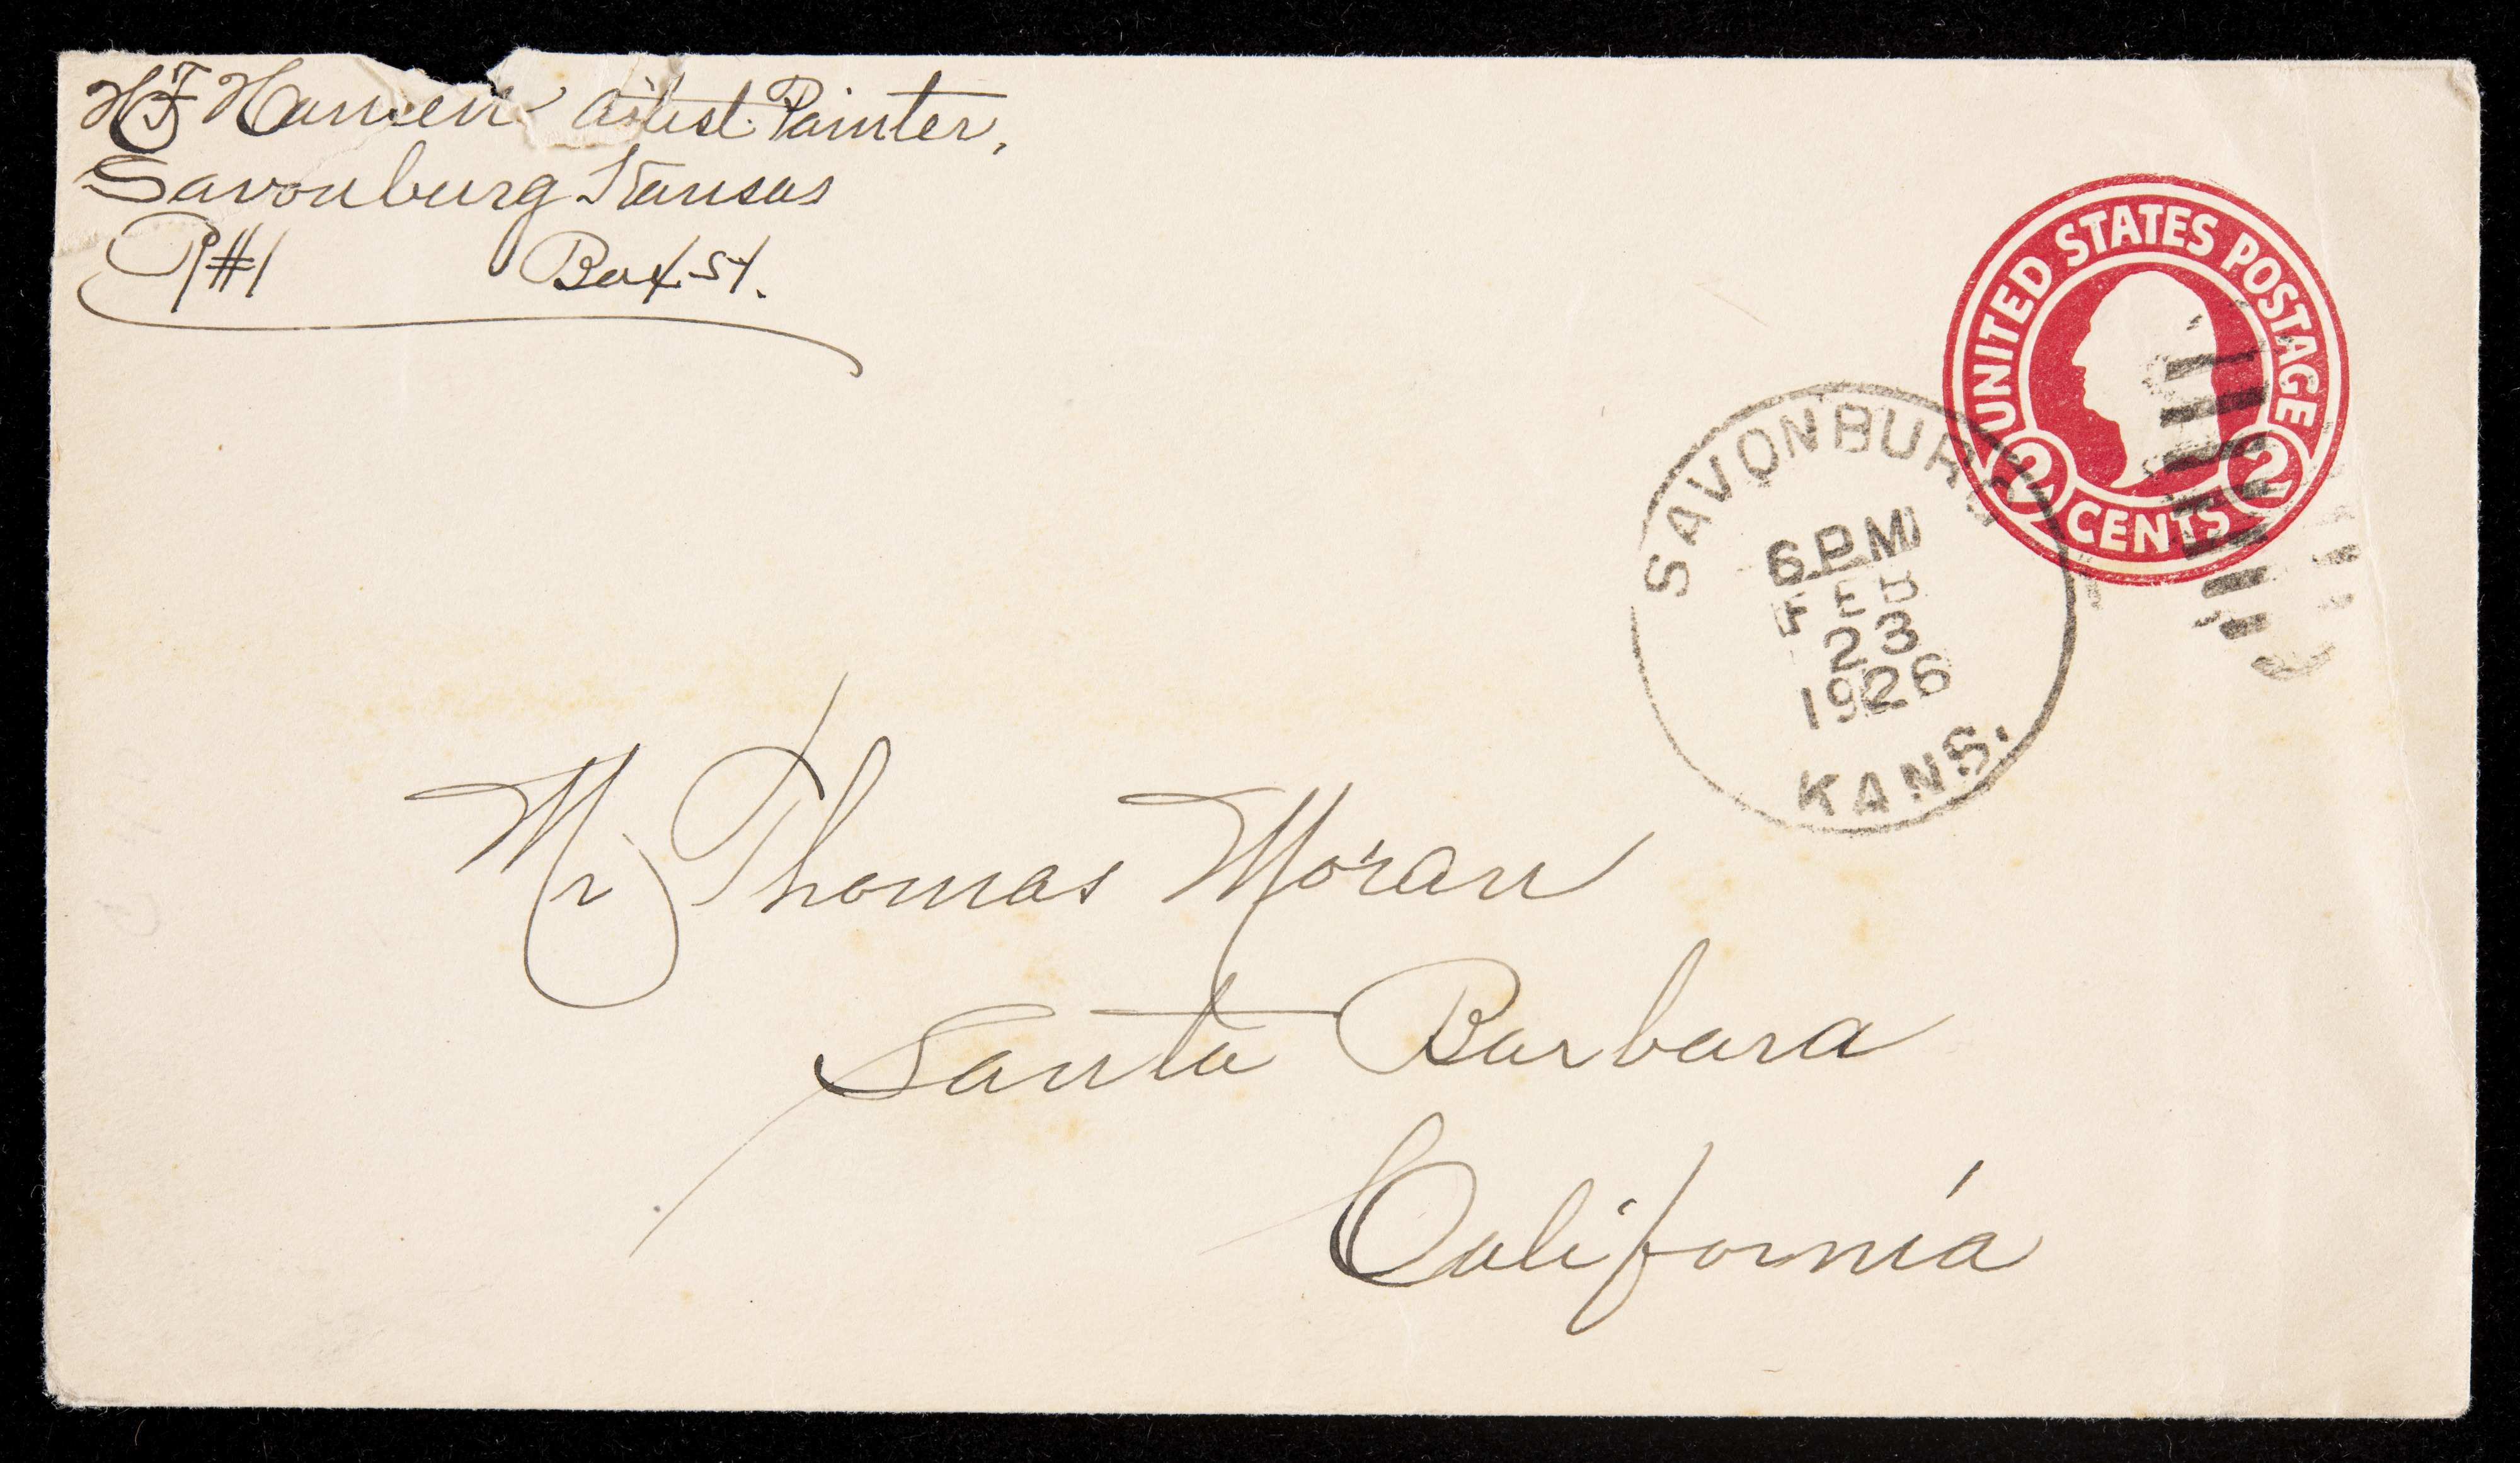 Hansen Artist Painter,
Savonburg Kansas
R#1 Box 51.
UNITED STATES POSTAGE
2 CENTS 2
SAVONBURG
6 PM
FEB
23
1926
KANS.
Mr Thomas Moran
Santa Barbara
California